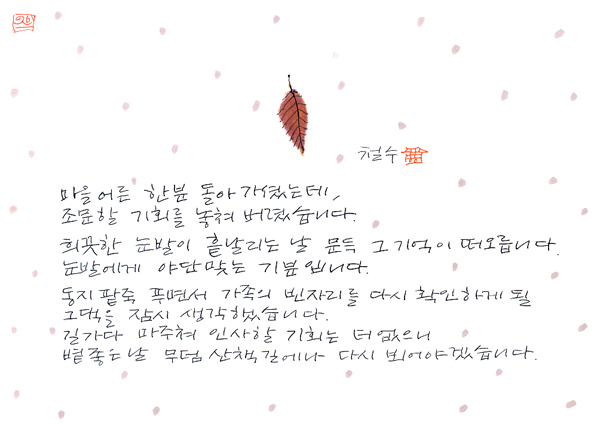 철수
마을어른 한분 돌아가셨는데,
조문할 기회를 놓쳐 버렸습니다.
희끗한 눈발이 흩날리는 날 문득 그 기억이 떠오릅니다.
눈발에게 야단맞는 기분입니다.
동지팥죽 푸면서 가족의 빈자리를 다시 확인하게 될
그댁을 잠시 생각했습니다.
길가다 마주쳐 인사할 기회는 더 없으니
볕좋은날 무덤 산책길에나 다시 뵈어야겠습니다.